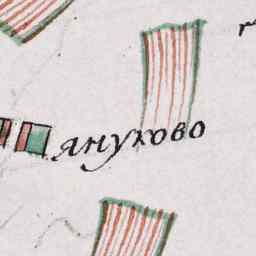 янухово